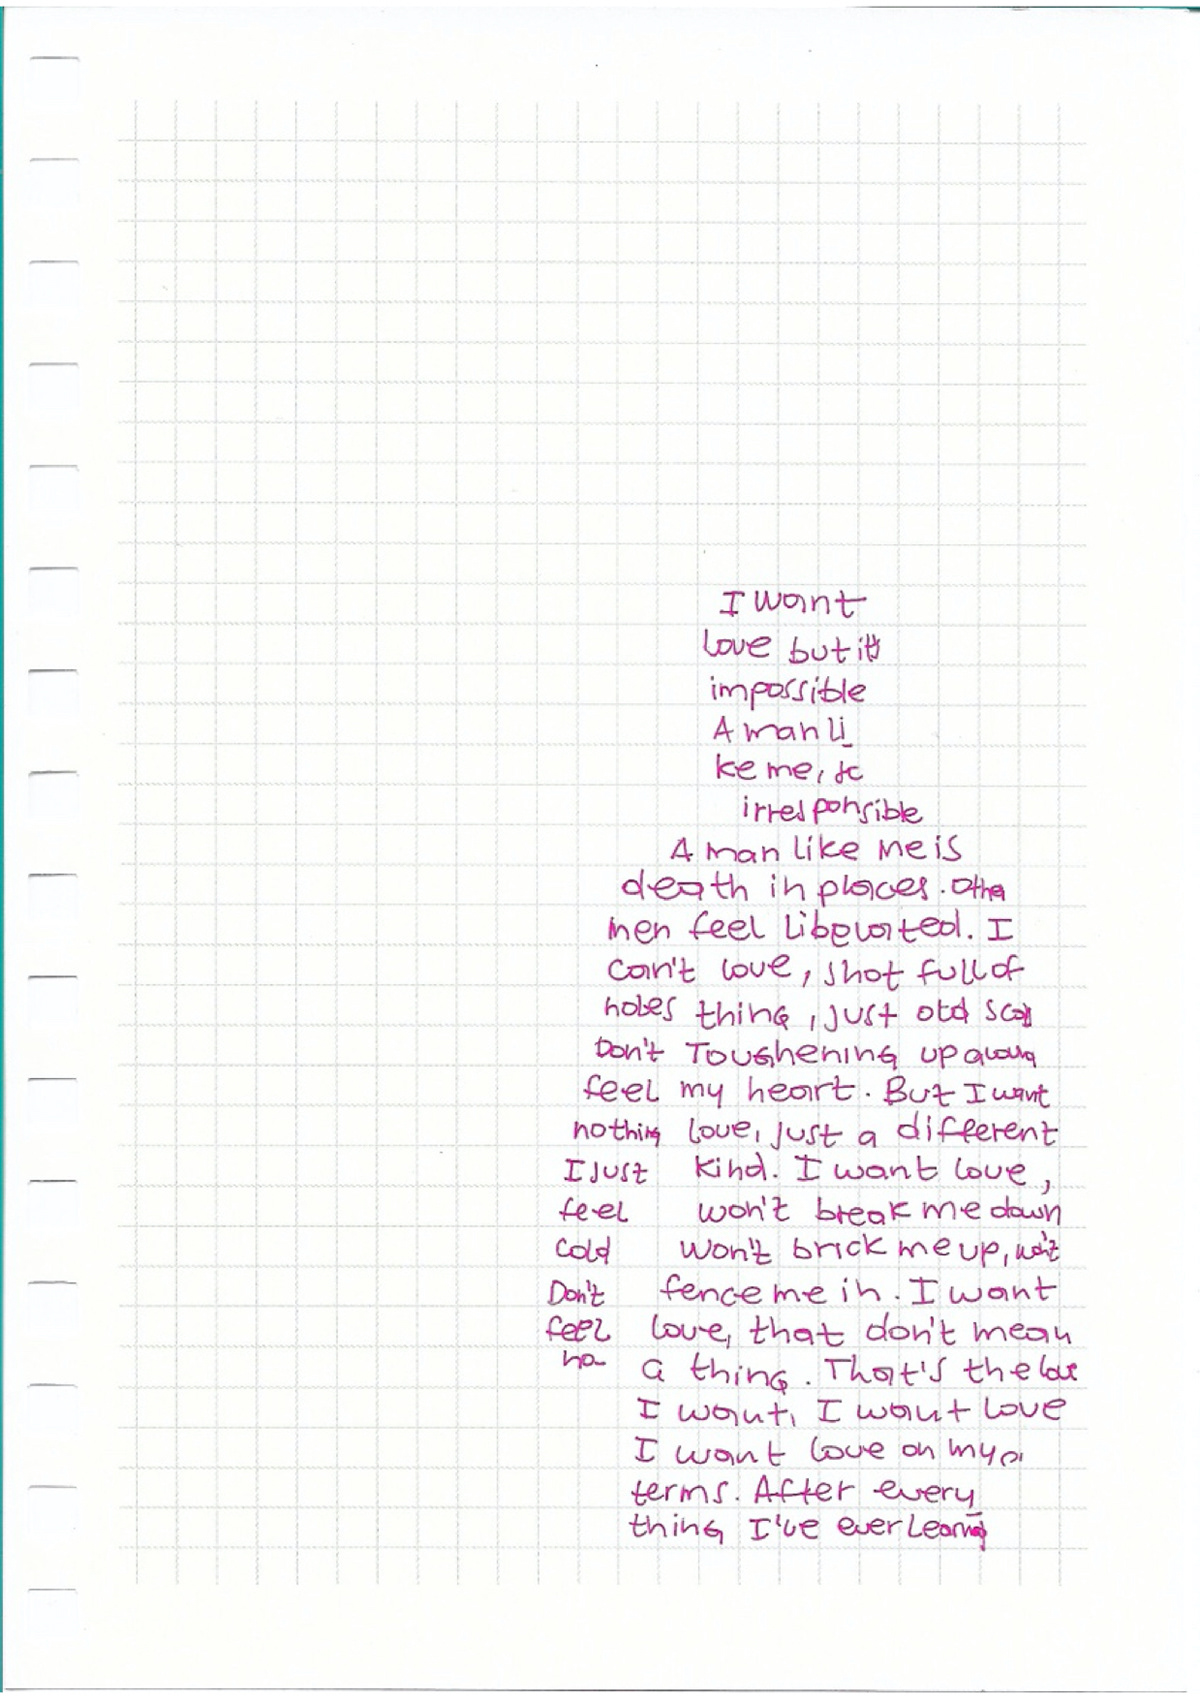 I want
love but it's
impossible
A man li_
ke me, so
irresponsible
A man like me is
death in places. Other
men feel liberated. I
can't love, shot full of
holes thing, just old scars
Don't Toughening up around
feel my heart. But I want
nothing love, just a different
I just kind. I want love,
feel won't break me down
cold won't brick me up, won't
Don't fence me in. I want
feel love, that don't mean
no- a thing. That's the love
I want, I want love
I want love on my o
terms. After every_
thing I've ever learned